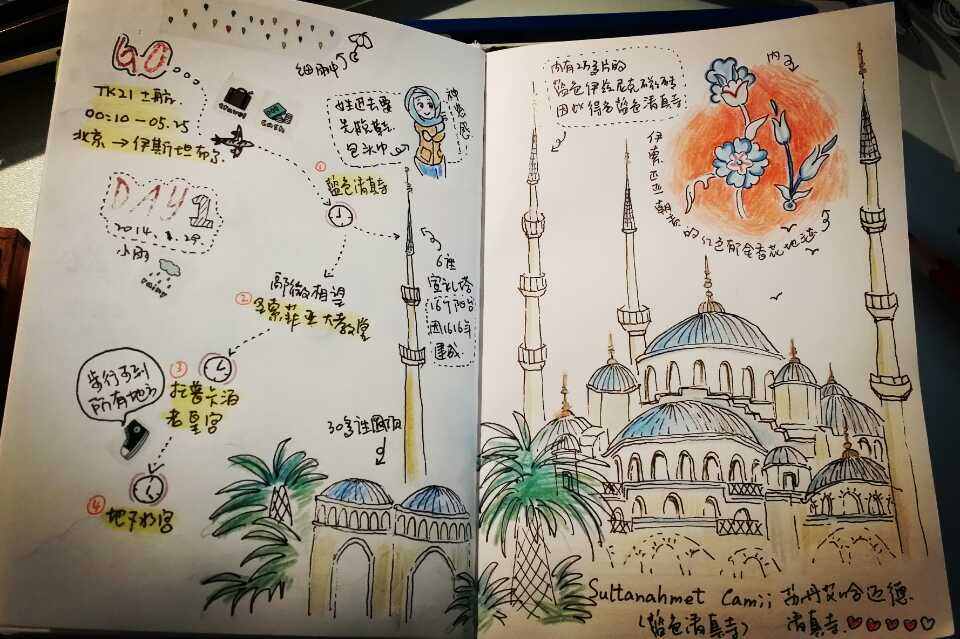 GO...
TK21 土航
00:10-05.25
北京→伊斯坦布尔
travel
cash
细雨中
DAY 1
2014.8.29.
小雨
rainy
女生进去要
先脱鞋
包头巾
神秘感
①
蓝色清真寺
6座
宣礼塔
16个阳台
因1616年
建成
②
高傲相望
圣索菲亚大教堂
③
托普卡泊
老皇宫
步行可到
所有地方
④
地下水宫
30多座圆顶
内有2万多片的
蓝色伊兹尼克磁砖
因此得名蓝色清真寺
内
伊索匹亚朝
的红色郁金香花地毯
Sultanahmet Camii 苏丹艾哈迈德
(蓝色清真寺) 清真寺